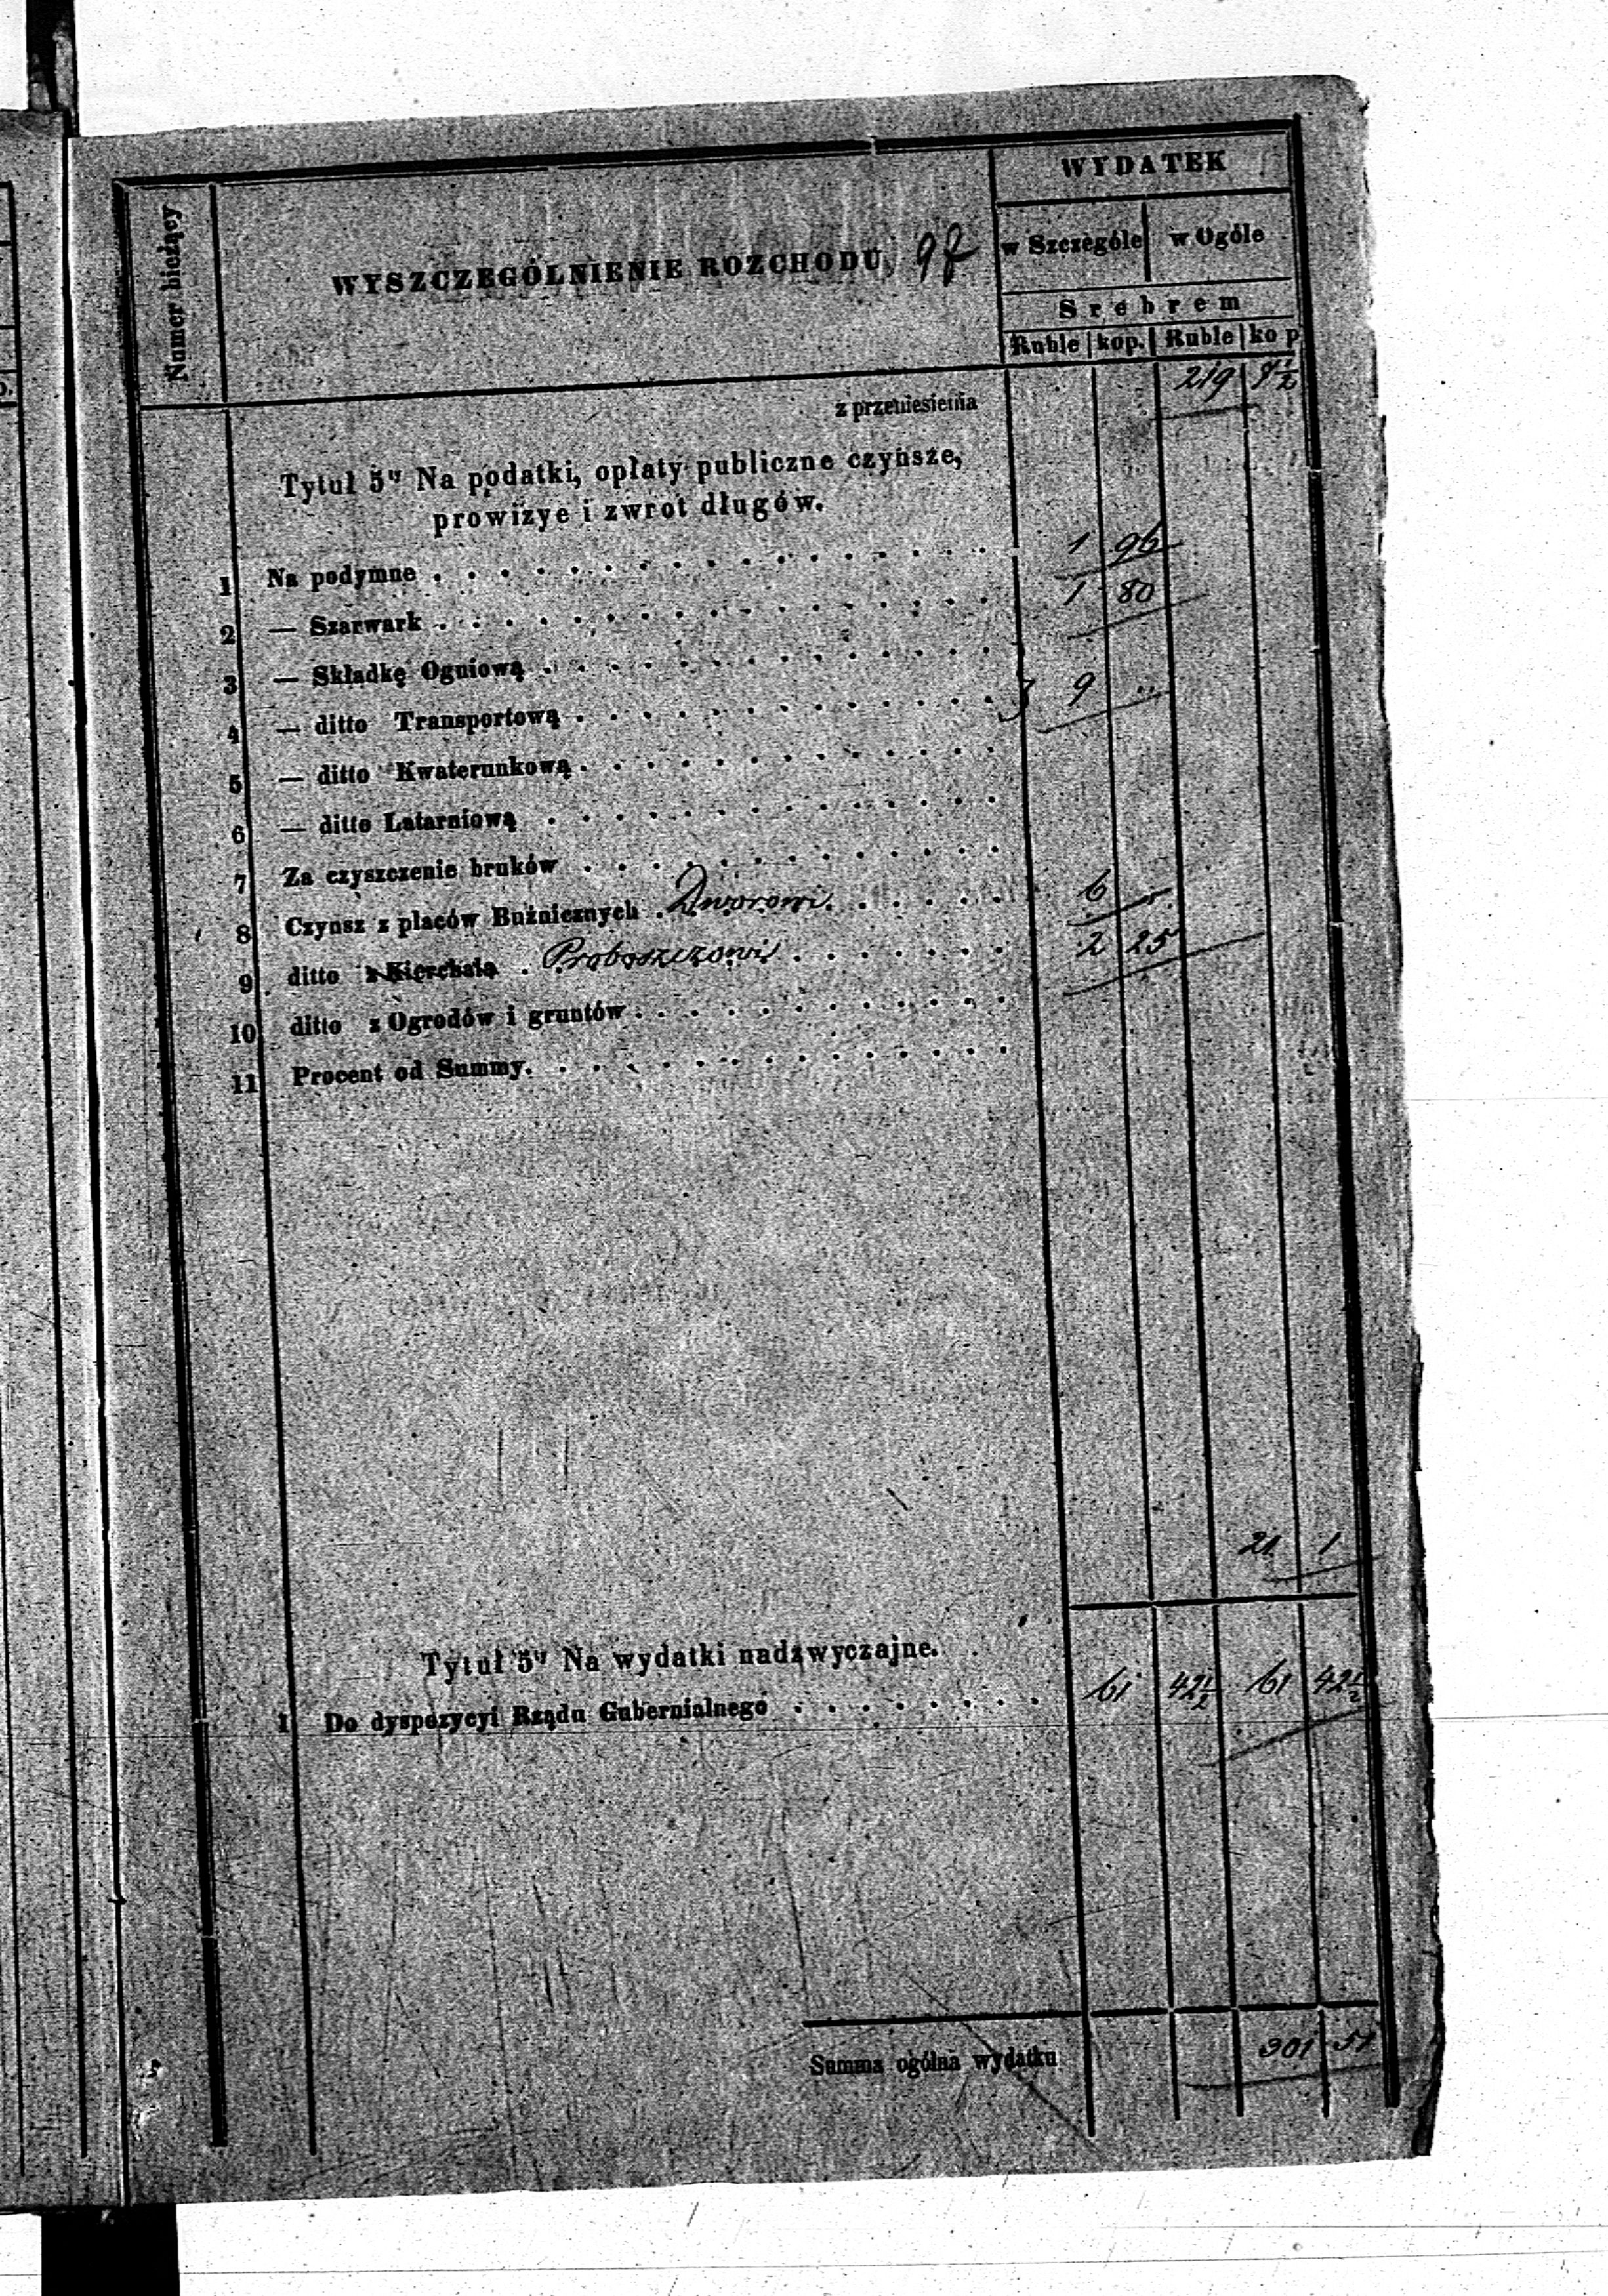 Numer bieżący
WYSZCZEGÓLNIENIE ROZCHODU 97
WYDATEK
w Szczególe w Ogóle
Srebrem
Ruble kop. Ruble kop
z przeniesienia 219 7 1/2
Tytuł 5ty Na podatki, opłaty publiczne czynsze,
prowizye i zwrot długów.
1 Na podymne 1 96
2 — Szarwark 1 80
3 — Składkę Ogniową
4 — ditto Transportową 9 "
5 — ditto Kwaterunkową
6 — ditto Latarniową
7 Za czyszczenie bruków
8 Czynsz z placów Bużnicznych Dworowi 6
9 ditto z Kierchala Proboszczowi 2 25
10 ditto z Ogrodów i gruntów
11 Procent od Summy.
21 1
Tytuł 5ty Na wydatki nadzwyczajne.
1 Do dyspozycyi Rządu Gubernialnego 61 42 1/2 61 42 1/2
Summa ogólna wydatku 301 51